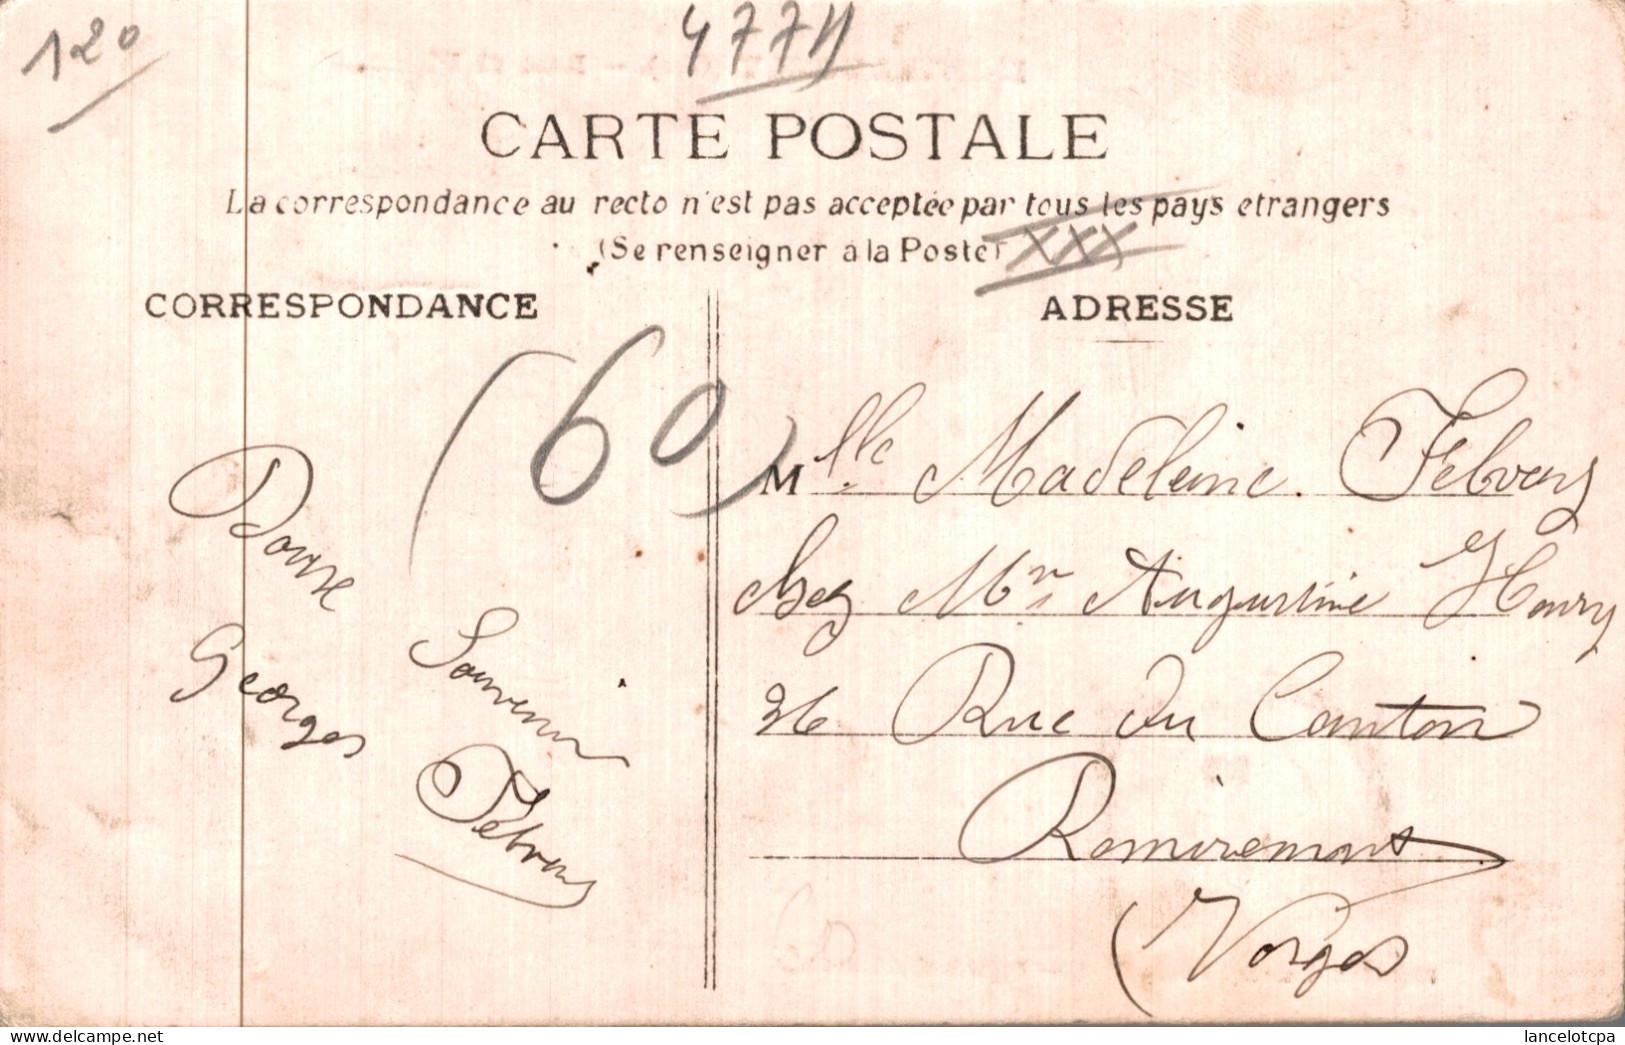 120
4771
CARTE POSTALE
La correspondance au recto n'est pas acceptée par tous les pays etrangers
(Se renseigner à la Poste)
XXX
CORRESPONDANCE
ADRESSE
(60)
Souvenir
Georges
Febvay
Mlle Madeleine Febvay
chez Mr Augustine Henry
26 Rue du Canton
Remiremont
(Vosges
lancelotcpa